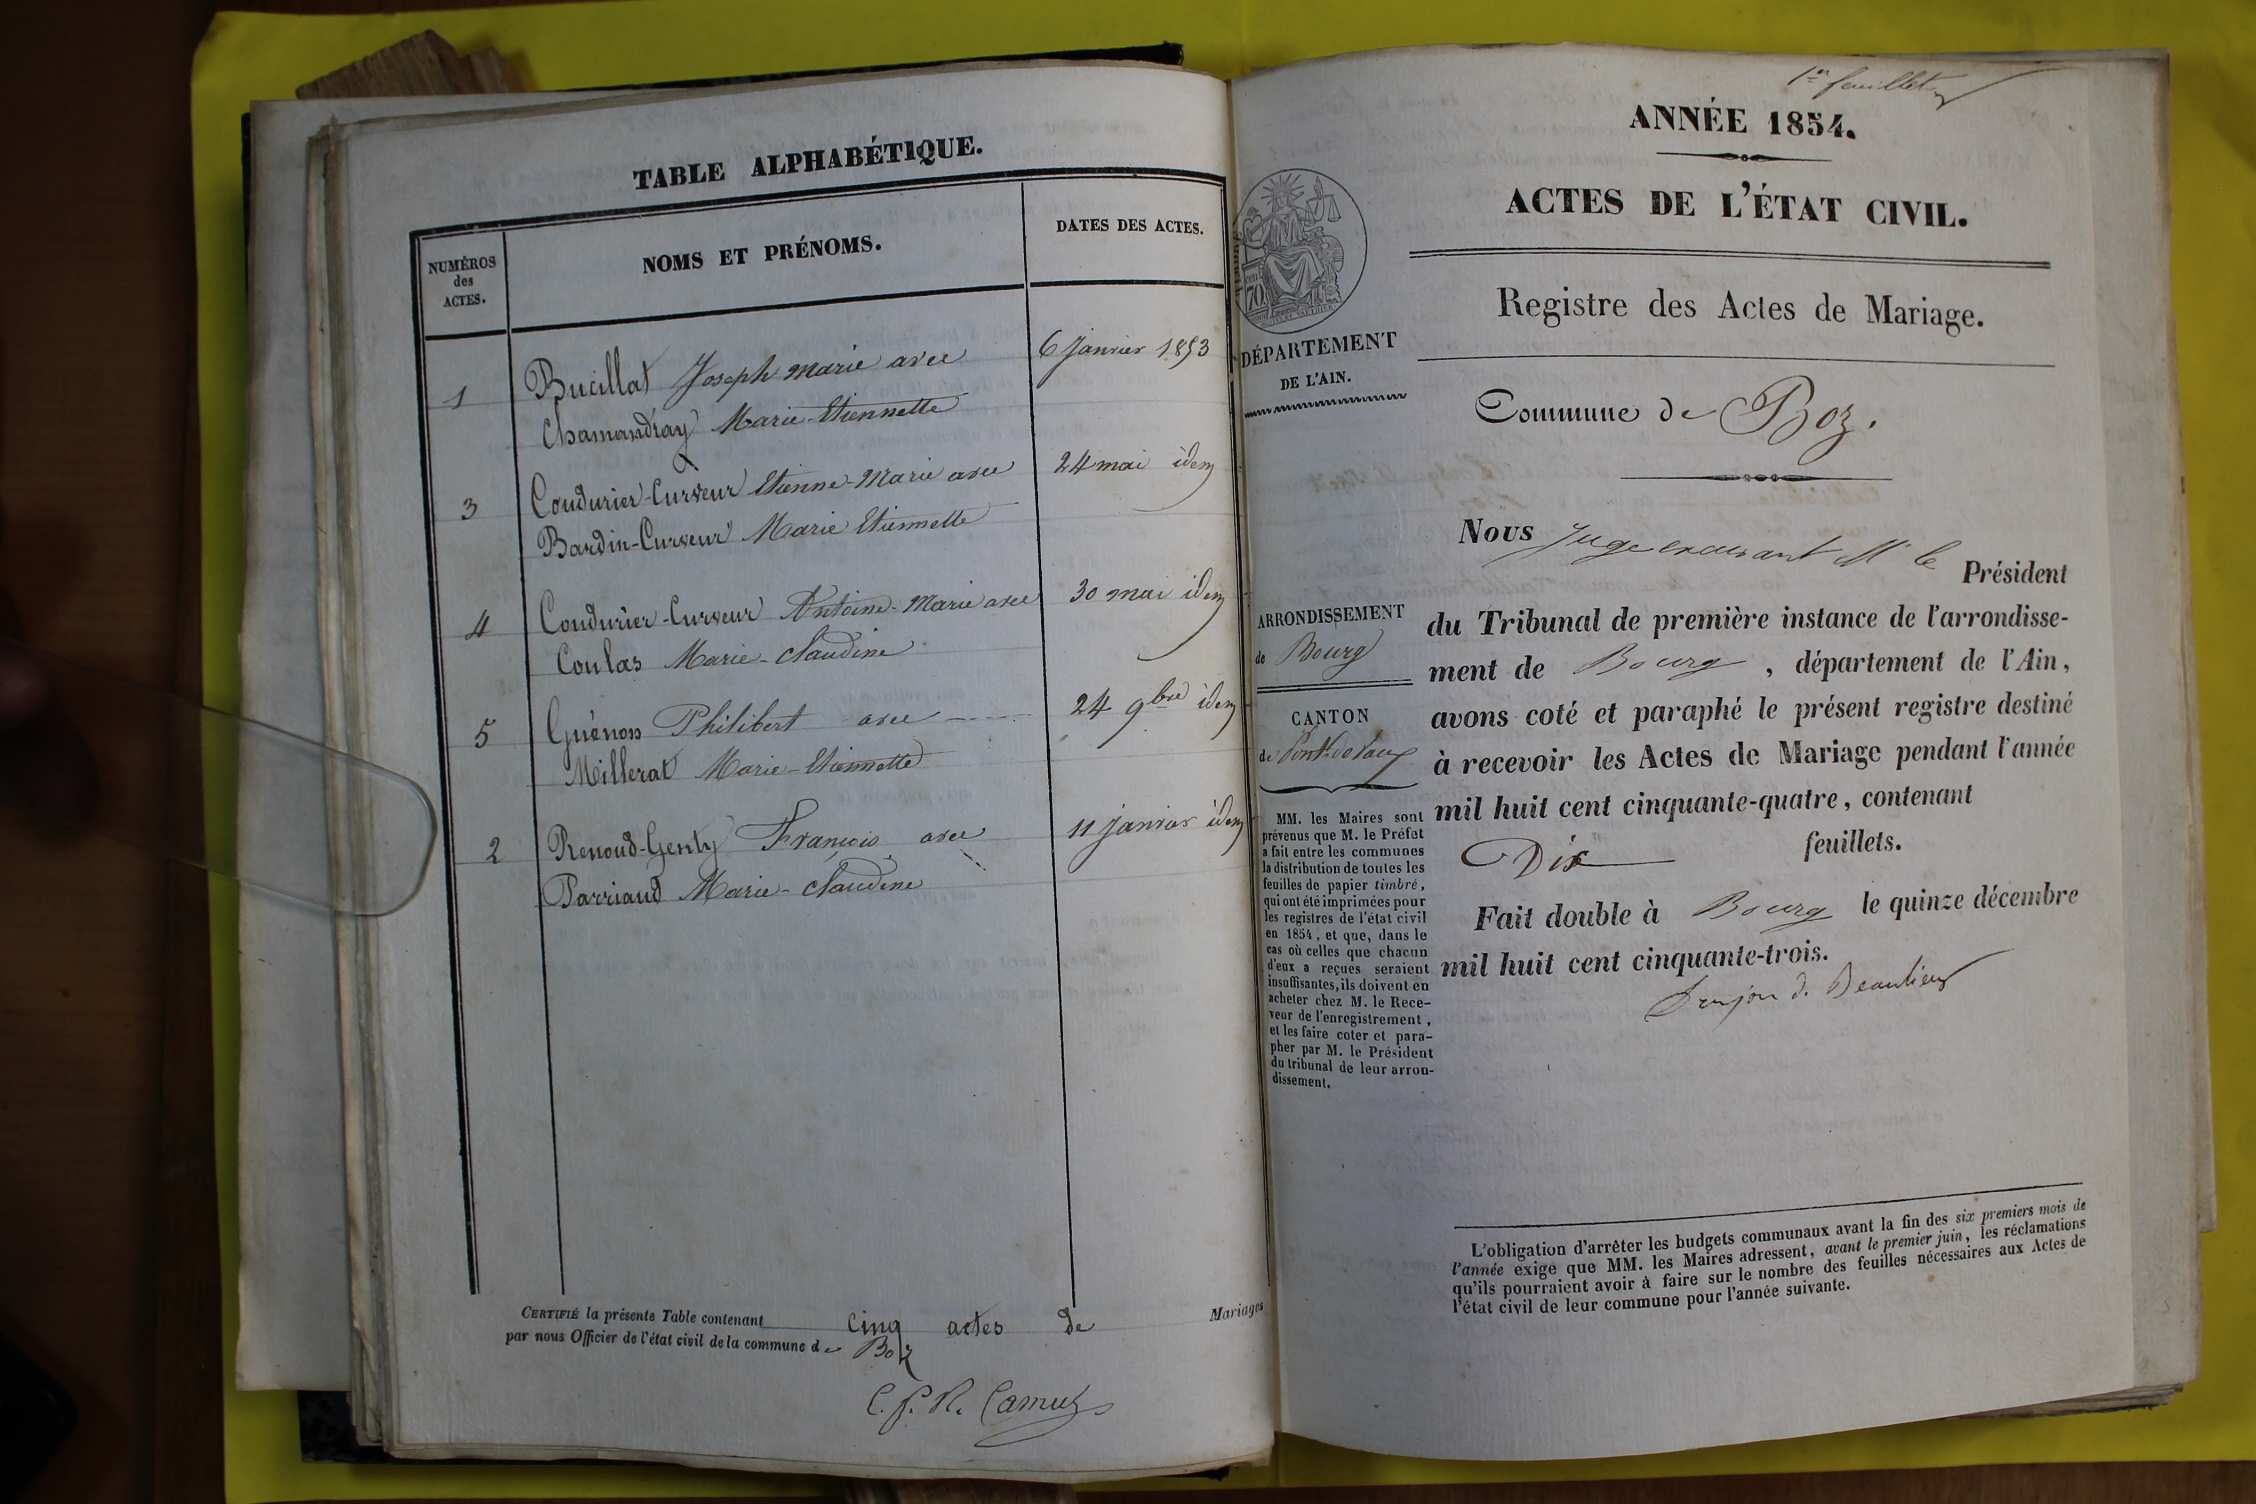 TABLE ALPHABÉTIQUE.
NUMÉROS des ACTES.
NOMS ET PRÉNOMS.
DATES DES ACTES.
1 Bucillat Joseph marie avec 6 Janvier 1853
Chamandray Marie-Etiennette
3 Coudurier-Curveur Etienne-Marie avec 24 mai idem
Bardin-Curveur Marie Etiennette
4 Coudurier-Curveur Antoine-Marie avec 30 mai idem
Coulas Marie-Claudine
5 Guénon Philibert avec 24 9bre idem
Millerat Marie-Etiennette
2 Renoud-Genty François avec 11 Janvier idem
Parriaud Marie-Claudine
CERTIFIÉ la présente Table contenant cinq actes de Mariages
par nous Officier de l'état civil de la commune de Boz
C. J. R. Camuz
1er feuillet
ANNÉE 1854.
ACTES DE L'ÉTAT CIVIL.
Registre des Actes de Mariage.
DÉPARTEMENT
DE L'AIN.
Commune de Boz.
Nous Juge M. le Président
du Tribunal de première instance de l'arrondisse-
ment de Bourg, département de l'Ain,
avons coté et paraphé le présent registre destiné
à recevoir les Actes de Mariage pendant l'année
mil huit cent cinquante-quatre, contenant
Dix feuillets.
Fait double à Bourg le quinze décembre
mil huit cent cinquante-trois.
de Beaulieu
ARRONDISSEMENT
de Bourg
CANTON
de Pont de Vaux
MM. les Maires sont
prévenus que M. le Préfet
a fait entre les communes
la distribution de toutes les
feuilles de papier timbré,
qui ont été imprimées pour
les registres de l'état civil
en 1854, et que, dans le
cas où celles que chacun
d'eux a reçues seraient
insuffisantes, ils doivent en
acheter chez M. le Rece-
veur de l'enregistrement,
et les faire coter et para-
pher par M. le Président
du tribunal de leur arron-
dissement.
L'obligation d'arrêter les budgets communaux avant la fin des six premiers mois de
l'année exige que MM. les Maires adressent, avant le premier juin, les réclamations
qu'ils pourraient avoir à faire sur le nombre des feuilles nécessaires aux Actes de
l'état civil de leur commune pour l'année suivante.